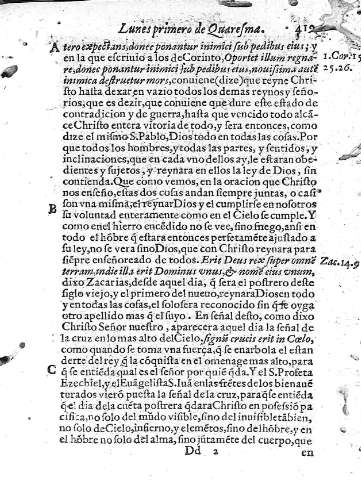 Lunes primero de Quaresma. 419
A tero expectans, donec ponantur inimici sub pedibus eius; y
en la que escriuio a los de Corinto, Oportet illum regna- 1.Cor.15
re, donec ponantur inimici sub pedibus eius, nouissima autē 25.26.
inimica destruetur mors, conuiene (dize) que reyne Chri-
sto hasta dexar en vazio todos los demas reynos y seño-
rios, que es dezir, que conuiene que dure este estado de
contradicion y de guerra, hasta que vencido todo alcā-
ce Christo entera vitoria de todo, y sera entonces, como
dize el mismo S. Pablo, Dios todo en todas las cosas. Por
que todos los hombres, y todas las partes, y sentidos, y
inclinaciones, que en cada vno dellos ay, le estaran obe-
dientes y sujetos, y reynara en ellos la ley de Dios, sin
contienda. Que como vemos, en la oracion que Christo
nos enseño, estas dos cosas andan siempre juntas, o casi
son vna misma, el reynar Dios y el cumplirse en nosotros
B su voluntad enteramente como en el Cielo se cumple. Y
como en el hierro encēdido no se vee, sino fuego, ansi en
todo el hōbre q̃ estara entonces perfetamēte ajustado a
su ley, no se vera sino Dios, que con Christo reynara para
siēpre enseñoreado de todos. Erit Deus rex super omnē Zac.14.9
terram, in die illa erit Dominus vnus, & nomē eius vnum,
dixo Zacarias, desde aquel dia, q̃ sera el postrero deste
siglo viejo, y el primero del nueuo, reynara Dios en todo
y en todas las cosas, el solo sera reconocido sin q̃ se oyga
otro apellido mas q̃ el suyo. En señal desto, como dixo
Christo Señor nuestro, aparecera aquel dia la señal de
la cruz en lo mas alto del Cielo, signū crucis erit in Cœlo,
como quando se toma vna fuerça, q̃ se enarbola el estan
derte del rey q̃ la cōquista en el omenage mas alto, para
C q̃ se entiēda qual es el señor por quiē q̃da. Y el S. Profeta
Ezechiel, y el Euāgelista S. Iuā en las frētes de los bienauē
turados vierō puesta la señal de la cruz, para q̃ se entiēda
q̃ el dia de la cuēta postrera q̃dara Christo en possessiō pa
cifica, no solo del mūdo visible, sino del inuisible tābien,
no solo de Cielo, infierno, y elemētos, sino del hōbre, y en
el hōbre no solo del alma, sino jūtamēte del cuerpo, que
Dd 2 en